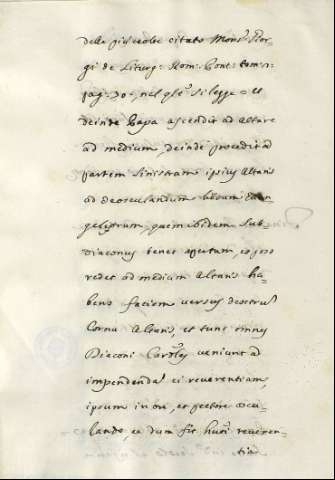 delle più volte citato Mons.r Gior-
gi de Liturg: Rom: Pont: tom: 1:
pag: 30, nel q.le si legge = et
deinde Papa ascendit ad altare
ad medium, deinde procedit ad
partem sinistram ipsius Altaris
ad deosculandum librum Evan
geliorum, quem ibidem Sub
diaconus tenet apertum,
redit ad medium Altaris ha
bens faciem versus dextrum
Cornu Altaris, et tunc omnes
Diaconi Card.les veniunt ad
impendendam ei reverentiam
ipsum in ore, et pectore oscu-
lando, et dum fit hui.s reveren-
tiam